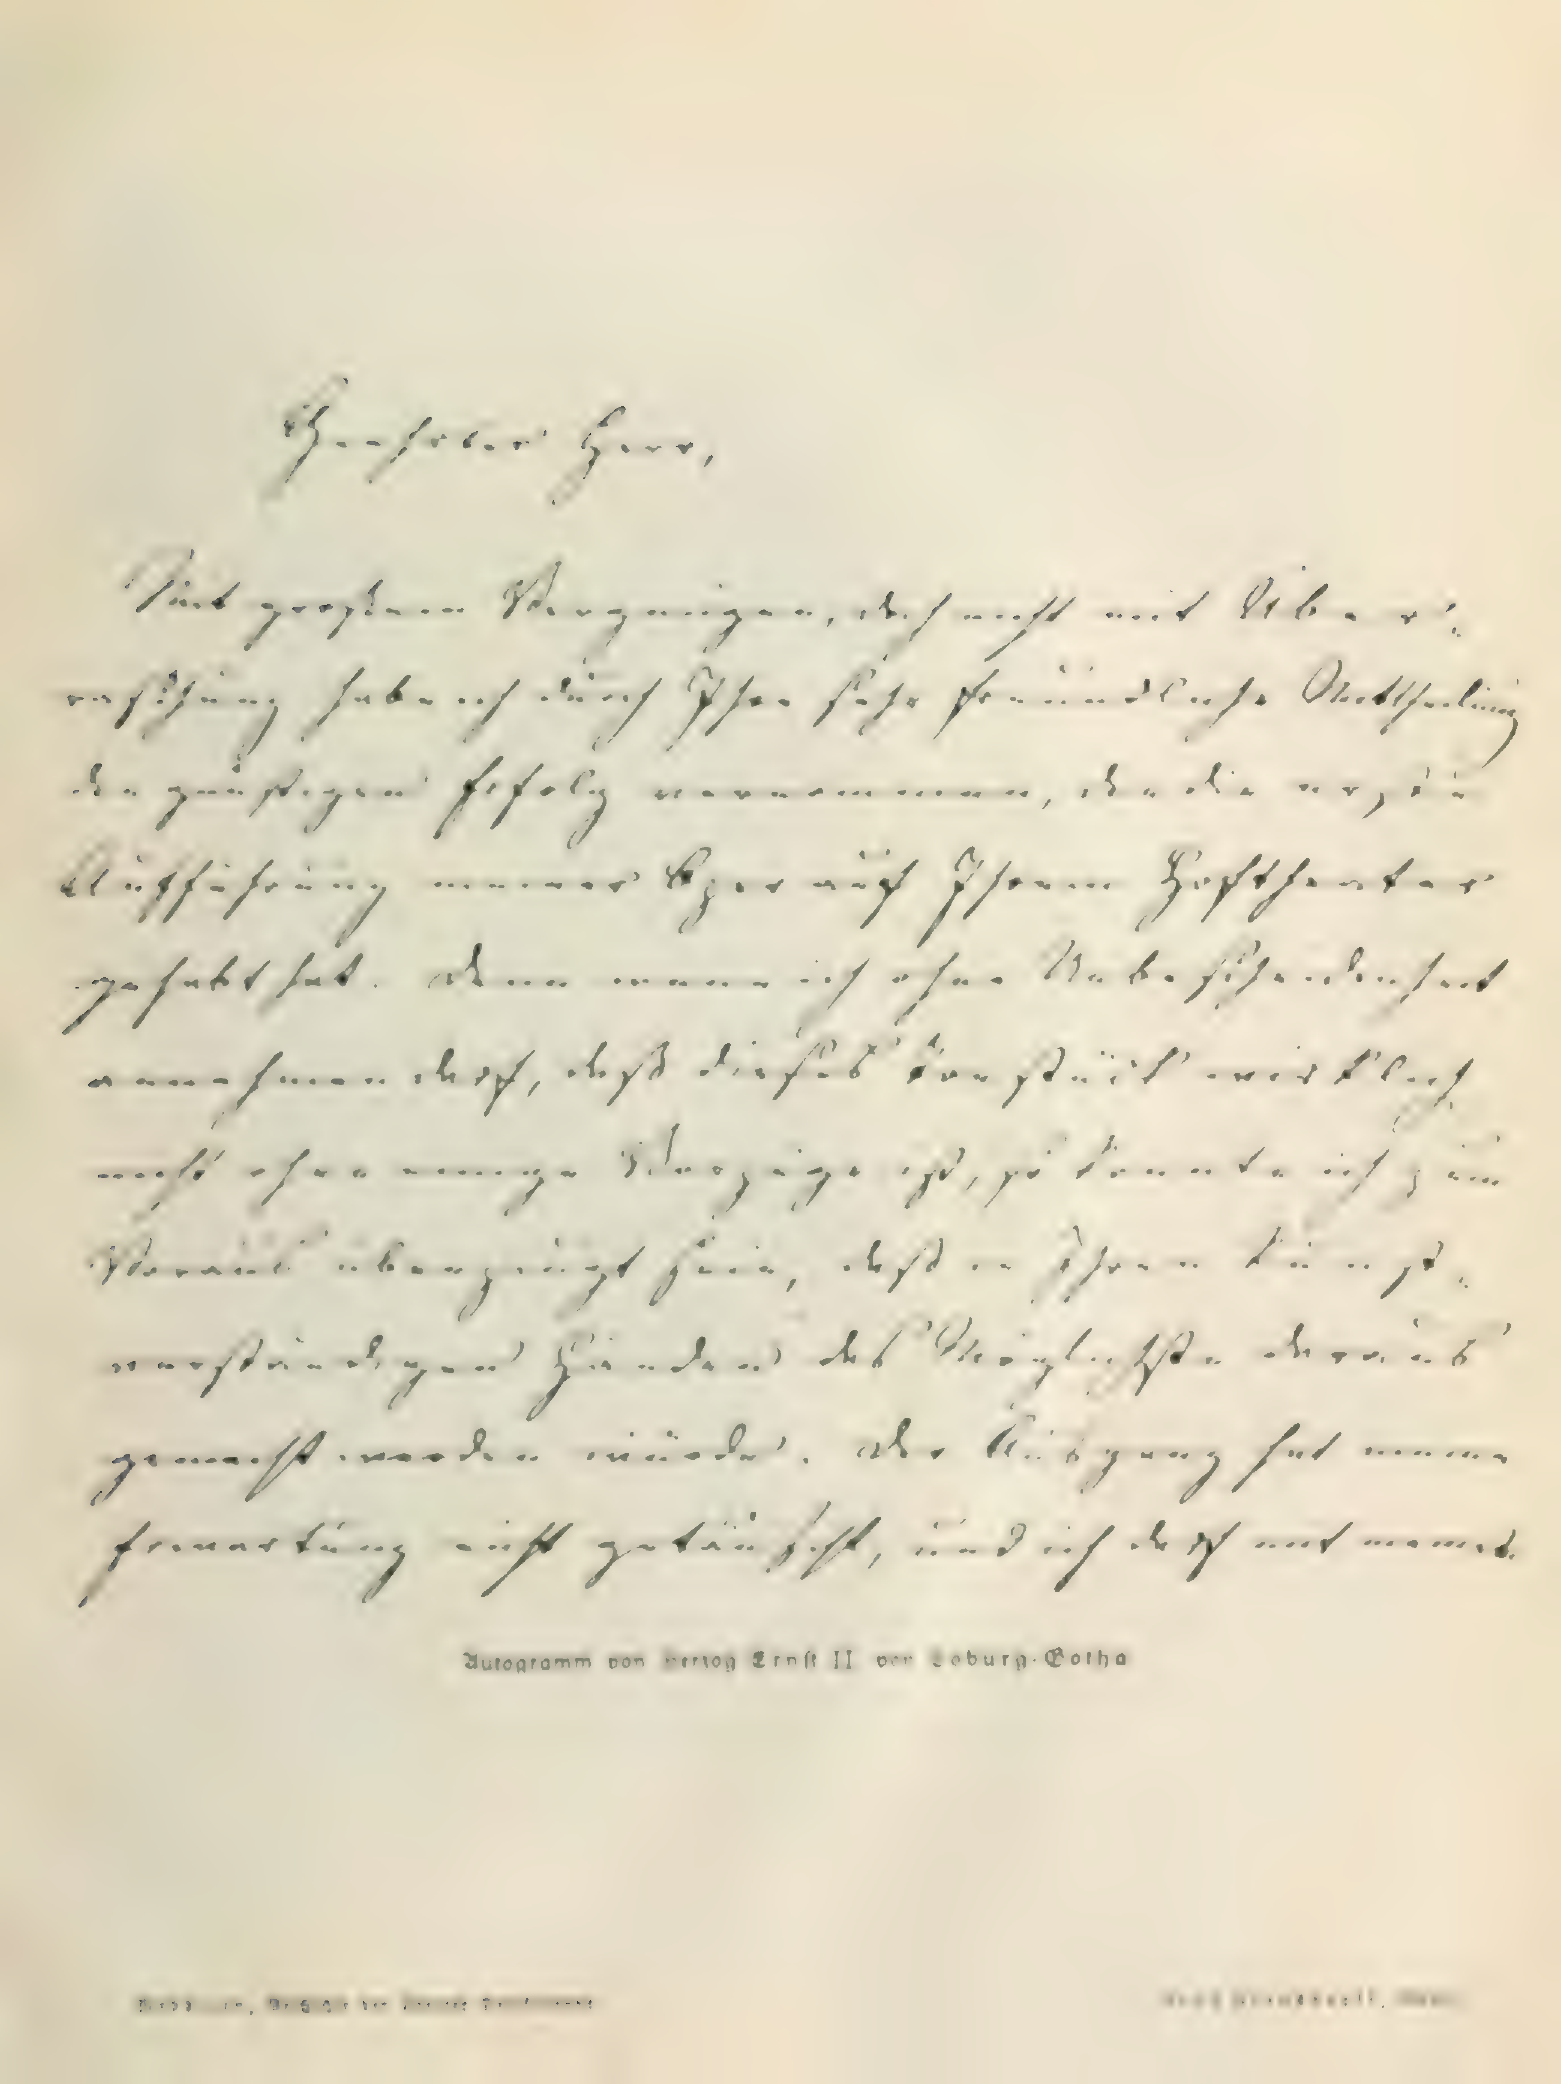 Geehrter Herr,
Mit großem Vergnügen, doch nicht mit Über-
raschung habe ich durch Ihre sehr freundliche Mittheilung
den günstigen Erfolg vernommen, den die erste
Aufführung meiner Oper auf Ihrem Hoftheater
gehabt hat. Denn wenn ich ohne Unbescheidenheit
annehmen darf, daß dieses Tonstück wirklich
nicht ohne einige Vorzüge ist, so konnte ich zum
Voraus überzeugt sein, daß in Ihren kunst-
verständigen Händen das Möglichste daraus
gemacht werden würde. Der Ausgang hat meine
Erwartung nicht getäuscht, und ich darf mit meinem
Autogramm von Herzog Ernst II von Coburg-Gotha